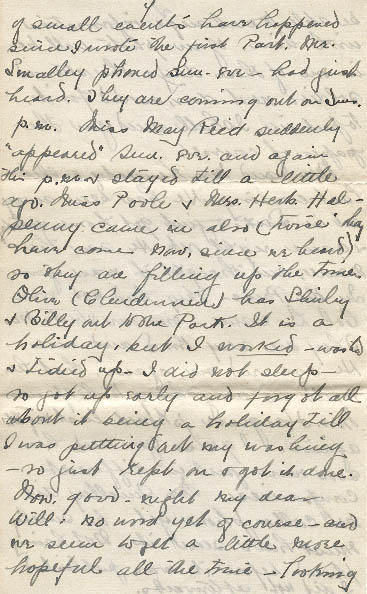 of small events have happened
since I wrote the first Part. Mr.
Smalley phoned Sun. eve - had just
heard. They are coming out on
p.m. Miss May Reed suddenly
"appeared" Sun. eve. and again
this p.m. & stayed till a little
ago. Miss Poole & Mrs. Herb. Hal-
penny came in also (those
have come now, since we heard)
so they are filling up the time.
Olive (Clendennin) has Shirley
& Billy out to the Park. It is a
holiday, but I worked - washed
& tidied up - I did not sleep -
so got up early and forgot all
about it being a holiday till
I was putting out my washing
- so just kept on & got it done.
Now, good-night my dear
Will: no word yet of course - and
we seem to get a little more
hopeful all the time - looking